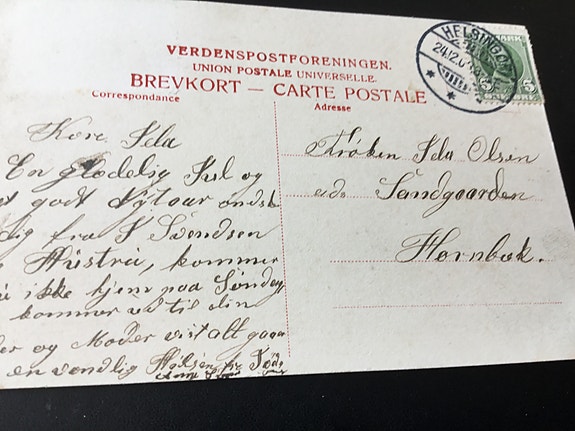 VERDENSPOSTFORENINGEN.
UNION POSTALE UNIVERSELLE.
BREVKORT — CARTE POSTALE
Correspondance
Adresse
HELSINGØR
24.12.0
MARK
5
Kære Ida
En glædelig Jul og
godt Nytaar ønsk
dig fra J Svendsen
Hustru, kommer
ikke hjem paa Søndag
kommer ud til din
og Moder vist alt gaar
en vendlig Hilsen fra
Frøken Ida Olsen
Sandgaarden
Hornbæk.